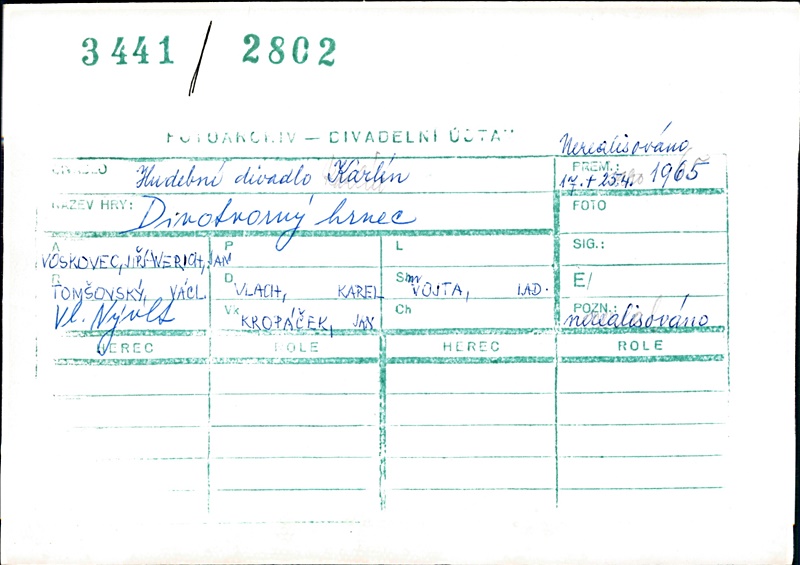 3441 / 2802
FOTOARCHIV — DIVADELNÍ ÚSTAV
Nerealisováno
DIVADLO Hudební divadlo Karlín
PREM.: 17. + 25.4. 1965
NÁZEV HRY: Divotvorný hrnec
FOTO
A VOSKOVEC, JIŘÍ WERICH, JAN
P
L
SIG.:
R TOMŠOVSKÝ, VÁCL.
D VLACH, KAREL
Sm VOJTA, LAD.
E/
Vl. Nývlt
Vk KROPÁČEK, JAN
Ch
POZN.: nerealisováno
HEREC ROLE HEREC ROLE